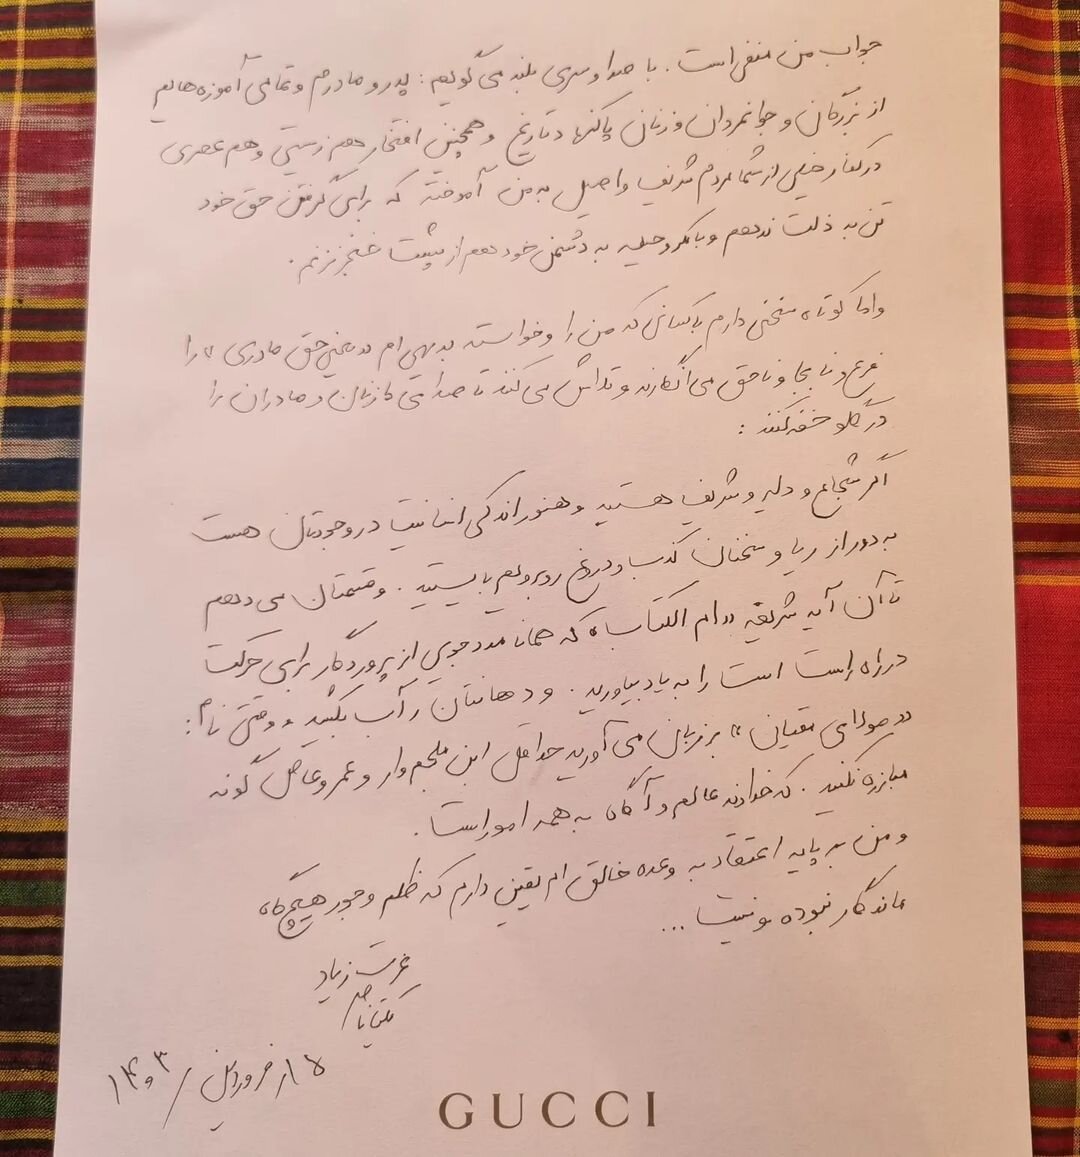 جواب من منفی است. با صدا و سری بلند می‌گویم: پدر و مادرم و تمامی آموزه‌هایم
از بزرگان و جوانمردان و زنان پاکنهاد تاریخ و همچنین افتخار هم‌زیستی و هم عصری
در کنار خیلی از شما مردم شریف و اصیل به من آموخته که برای گرفتن حق خود
تن به ذلت ندهم و با مکر و حیله به دشمن خود هم از پشت خنجر نزنم.
و اما کوتاه سخنی دارم با کسانی که من را و خواسته بدیهی‌ام «یعنی حق مادری» را
و نابجا و ناحق می‌انگارند و تلاش می‌کنند تا صدای زنان و مادران را
در گلو خفه کنند:
اگر شجاع و دلیر و شریف هستید و هنوز اندکی انسانیت در وجودتان هست
به دور از ریا و سخنان کذب و دروغ روبرویم بایستید. و قسمتان می‌دهم
تا آن آیه شریفه «ام الکتاب» که همانا مددجویی از پروردگار برای حرکت
در راه راست است را به یاد بیاورید. و دهانتان را آب بکشید و وقتی نام:
«مولای متقیان» بر زبان می‌آورید حداقل ابن ملجم‌وار و عمروعاص گونه
مبارزه نکنید. که خداوند عالم و آگاه به همه امور است.
و من بر پایه اعتقاد به وعده خالق‌ام یقین دارم که ظلم و جور هیچ‌گاه
ماندگار نبوده و نیست...
عزت زیاد
۱۵/فروردین/۱۴۰۳
GUCCI